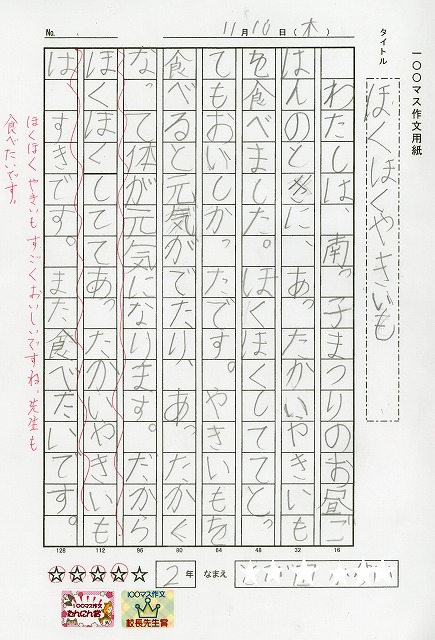 一〇〇マス作文用紙
タイトル
ほくほくやきいも
No.
11月10日(木)
わたしは、南っ子まつりのお昼ご
はんのときに、あったかいやきいも
を食べました。ほくほくしててと
てもおいしかったです。やきいもを
食べると元気がでたり、あったかく
なって体が元気になります。だから
ほくほくしててあったかいやきいも
は、すきです。また、食べたいです。
ほくほくやきいもすごくおいしいですね。先生も
食べたいです。
128 112 96 80 64 48 32 16
2年 なまえ
100マス作文
100マス作文
校長先生賞